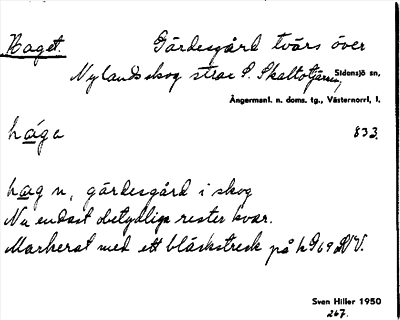 Haget. Gärdesgård tvärs över
Nylandsskog strax S. Skaltotjärn, Sidensjö sn,
Ångermanl. n. doms. tg., Västernorrl. l.
hága 833.
hag n, gärdesgård i skog
Nu endast obetydliga rester kvar.
Markerat med ett bläckstreck på h D 69 NV.
Sven Hiller 1950
267.